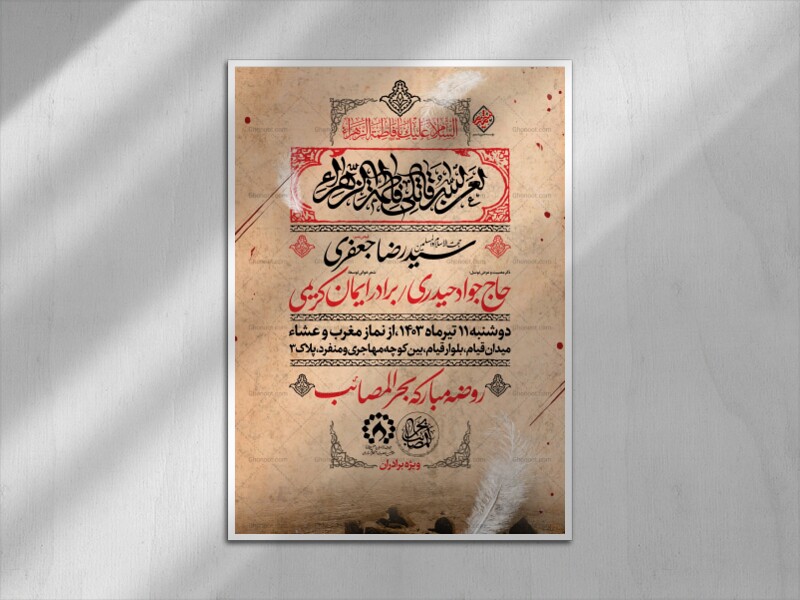 السلام علیک یا فاطمة الزهراء
لعن الله قاتلی فاطمة الزهراء
حجت الاسلام والمسلمین
سید رضا جعفری
حاج جواد حیدری / برادر ایمان کریمی
دوشنبه ۱۱ تیرماه ۱۴۰۳، از نماز مغرب و عشاء
میدان قیام، بلوار قیام، بین کوچه مهاجری و منفرد، پلاک ۳
روضه مبارکه بحر المصائب
بحر المصائب
ویژه برادران